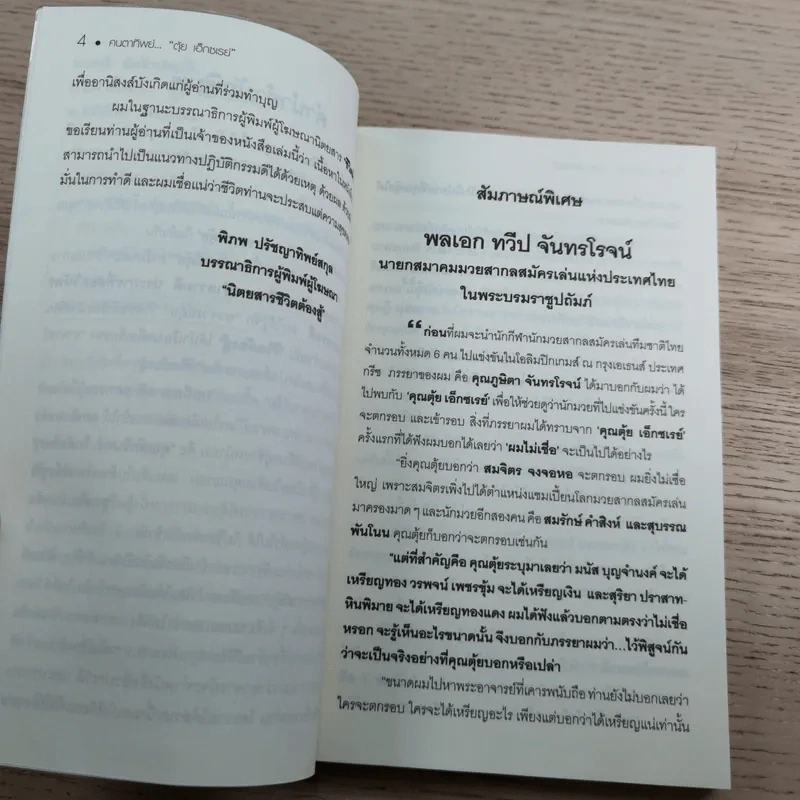 4 • คนตาทิพย์... "ตุ้ย เอ็กซเรย์"
เพื่ออานิสงส์บังเกิดแก่ผู้อ่านที่ร่วมทำบุญ
ผมในฐานะบรรณาธิการผู้พิมพ์ผู้โฆษณานิตยสาร
ขอเรียนท่านผู้อ่านที่เป็นเจ้าของหนังสือเล่มนี้ว่า
สามารถนำไปเป็นแนวทางปฏิบัติกรรมดีได้ด้วยเหตุ
มั่นในการทำดี และผมเชื่อแน่ว่าชีวิตท่านจะประสบแต่ความสุข
พิภพ ปรัชญาทิพย์สกุล
บรรณาธิการผู้พิมพ์ผู้โฆษณา
"นิตยสารชีวิตต้องสู้"
สัมภาษณ์พิเศษ
พลเอก ทวีป จันทรโรจน์
นายกสมาคมมวยสากลสมัครเล่นแห่งประเทศไทย
ในพระบรมราชูปถัมภ์
"ก่อนที่ผมจะนำนักกีฬานักมวยสากลสมัครเล่นทีมชาติไทย
จำนวนทั้งหมด 6 คน ไปแข่งขันในโอลิมปิกเกมส์ ณ กรุงเอเธนส์ ประเทศ
กรีซ ภรรยาของผม คือ คุณภูษิตา จันทรโรจน์ ได้มาบอกกับผมว่า ได้
ไปพบกับ 'คุณตุ้ย เอ็กซเรย์' เพื่อให้ช่วยดูว่านักมวยที่ไปแข่งขันครั้งนี้ใคร
จะตกรอบ และเข้ารอบ สิ่งที่ภรรยาผมได้ทราบจาก 'คุณตุ้ย เอ็กซเรย์'
ครั้งแรกที่ได้ฟังผมบอกได้เลยว่า 'ผมไม่เชื่อ' จะเป็นไปได้อย่างไร
"ยิ่งคุณตุ้ยบอกว่า สมจิตร จงจอหอ จะตกรอบ ผมยิ่งไม่เชื่อ
ใหญ่ เพราะสมจิตรเพิ่งไปได้ตำแหน่งแชมเปี้ยนโลกมวยสากลสมัครเล่น
มาครองมาด ๆ และนักมวยอีกสองคน คือ สมรักษ์ คำสิงห์ และสุบรรณ
พันโนน คุณตุ้ยก็บอกว่าจะตกรอบเช่นกัน
"แต่ที่สำคัญคือ คุณตุ้ยระบุมาเลยว่า มนัส บุญจำนงค์ จะได้
เหรียญทอง วรพจน์ เพชรขุ้ม จะได้เหรียญเงิน และสุริยา ปราสาท-
หินพิมาย จะได้เหรียญทองแดง ผมได้ฟังแล้วบอกตามตรงว่าไม่เชื่อ
หรอก จะรู้เห็นอะไรขนาดนั้น จึงบอกกับภรรยาผมว่า...ไว้พิสูจน์กัน
ว่าจะเป็นจริงอย่างที่คุณตุ้ยบอกหรือเปล่า
"ขนาดผมไปหาพระอาจารย์ที่เคารพนับถือ ท่านยังไม่บอกเลยว่า
ใครจะตกรอบ ใครจะได้เหรียญอะไร เพียงแต่บอกว่าได้เหรียญแน่เท่านั้น